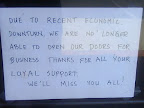 DUE TO RECENT ECONOMIC
DOWNTURN, WE ARE NO LONGER
ABLE TO OPEN OUR DOORS FOR
BUSINESS THANKS FOR ALL YOUR
LOYAL SUPPORT.
WE'LL MISS YOU ALL!